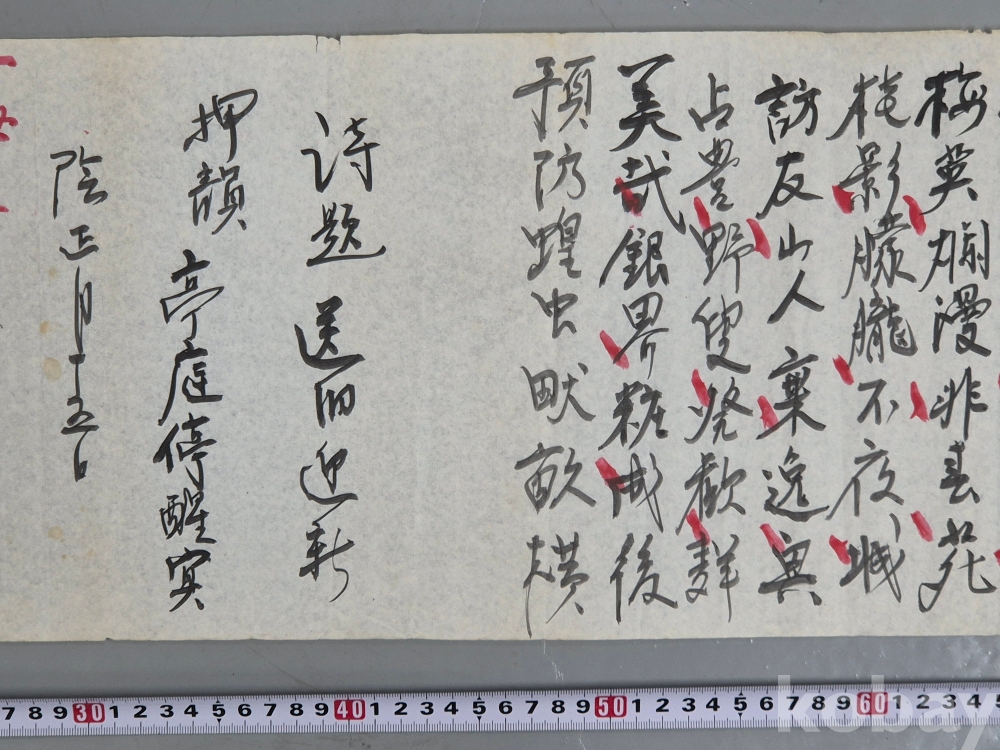 梅英爛漫非春苑
桂影朦朧不夜城
訪友山人棄逸興
占豊野叟発歡群
美哉銀界粧成後
預防蝗虫畎畝横
诗题 送旧迎新
押韻 亭庭停醒寞
陰正月十五日
7 8 9 30 1 2 3 4 5 6 7 8 9 40 1 2 3 4 5 6 7 8 9 50 1 2 3 4 5 6 7 8 9 60 1 2 3 4
kobay